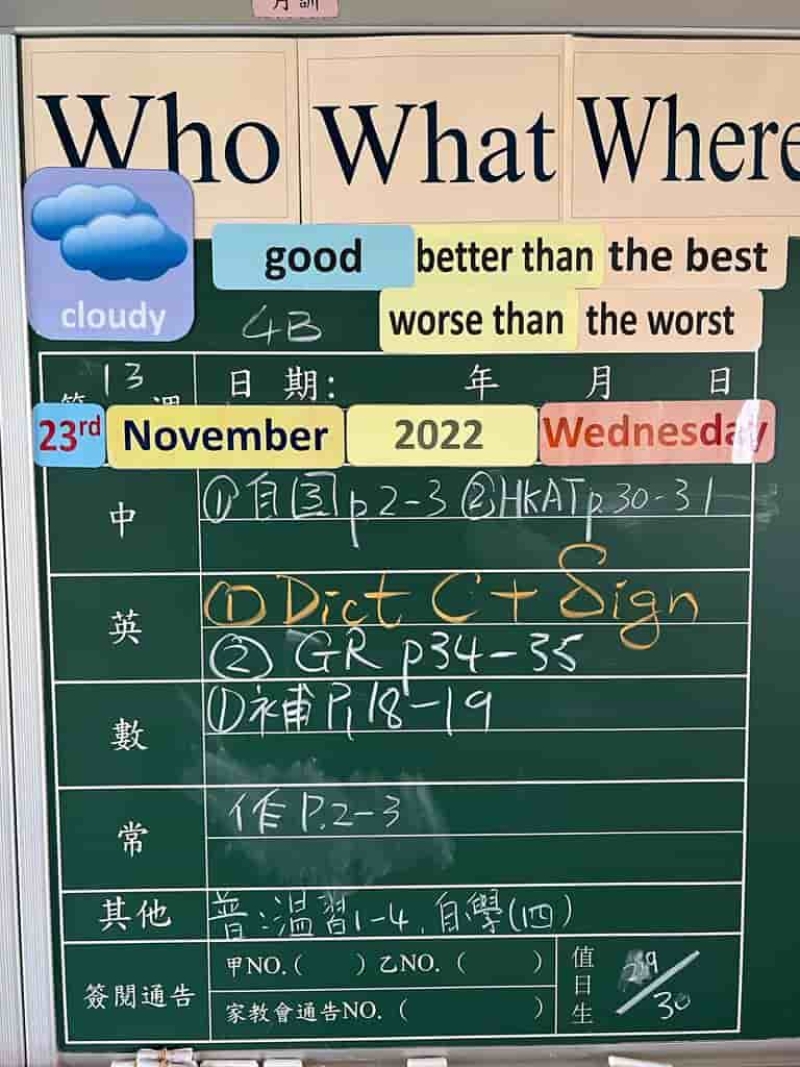 月訓
Who What Where
cloudy
good better than the best
worse than the worst
4B
第 13 週 日 期: 年 月 日
23rd November 2022 Wednesday
中 ①自国p2-3 ②HKATp.30-31
英 ①Dict C + Sign
② GR p34-35
數 ①補P.18-19
常 作P.2-3
其他 普:溫習1-4. 自學(四)
簽閱通告 甲NO.( ) 乙NO. ( ) 值日生 /30
家教會通告NO. ( )